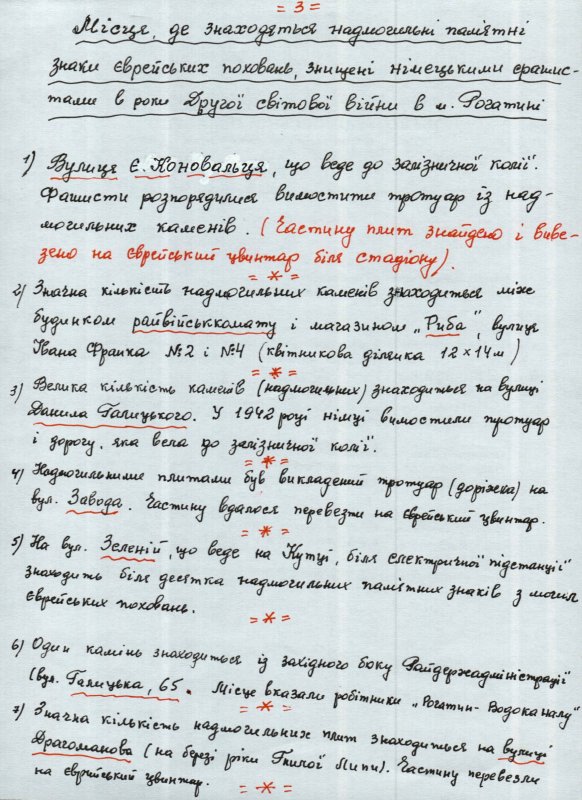 = 3 =
Місця, де знаходяться надмогильні памʼятні
знаки єврейських поховань, знищені німецькими фашис-
тами в роки Другої світової війни в м. Рогатині
1) Вулиця Є. Коновальця, що веде до залізничної колії.
Фашисти розпорядилися вимостити тротуар із над-
могильних каменів. (Частину плит знайдено і виве-
зено на єврейський цвинтар біля стадіону).
= * =
2) Значна кількість надмогильних каменів знаходиться між
будинком райвійськкомату і магазином „Риба", вулиця
Івана Франка №2 і №4 (квітникова ділянка 12 × 14 м)
= * =
3) Велика кількість каменів (надмогильних) знаходиться на вулиці
Данила Галицького. У 1942 році німці вимостили тротуар
і дорогу, яка вела до залізничної колії.
= * =
4) Надмогильними плитами був викладений тротуар (доріжка) на
вул. Завода. Частину вдалося перевезти на єврейський цвинтар.
= * =
5) На вул. Зеленій, що веде на Кутці, біля електричної підстанції
знаходить біля десятка надмогильних памʼятних знаків з могил
єврейських поховань.
= * =
6) Один камінь знаходиться із західного боку Райдержадміністрації
(вул. Галицька, 65. Місце вказали робітники „Рогатин-Водоканалу"
= * =
7) Значна кількість надмогильних плит знаходиться на вулиці
Драгоманова (на березі ріки Гнилої Липи). Частину перевезли
на єврейський цвинтар.
= * =